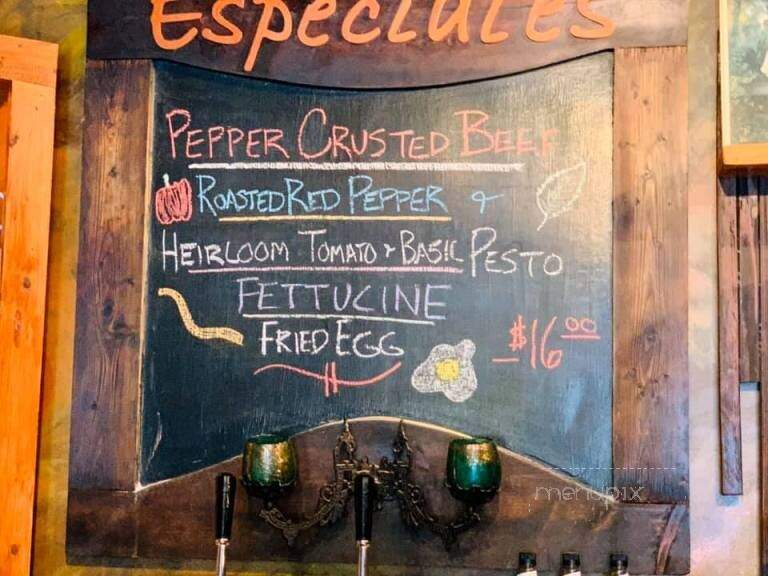 Especiales
PEPPER CRUSTED BEEF
ROASTED RED PEPPER &
HEIRLOOM TOMATO & BASIL PESTO
FETTUCINE
FRIED EGG
$16.00
menupix